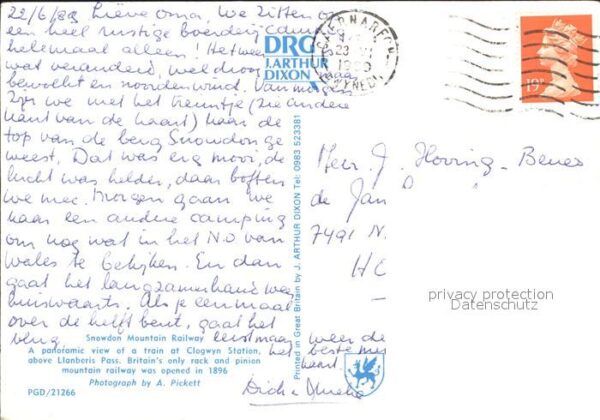 22/6/89 Lieve oma, We zitten op
een heel rustige boerderij
helemaal alleen! Het weer
wat veranderd, wel droog maar
bewolkt en noordenwind. Vanmorgen
zijn we met het treintje (zie andere
kant van de kaart) naar de
top van de berg Snowdon ge
weest. Dat was erg mooi, de
lucht was helder, daar boften
we mee. Morgen gaan we
naar een andere camping
om nog wat in het N.O van
Wales te bekijken. En dan
gaat het langzamerhand weer
huiswaarts. Als je eenmaal
over de helft bent, gaat het
Snowdon Mountain Railway
A panoramic view of a train at Clogwyn Station,
above Llanberis Pass. Britain's only rack and pinion
mountain railway was opened in 1896
Photograph by A. Pickett
PGD/21266
weer de
beste
DRG
J. ARTHUR
DIXON
Printed in Great Britain by J. ARTHUR DIXON Tel: 0983 523381
CAERNARFON
GWYNEDD
19P
de Jan
7491 N.
privacy protection
Datenschutz